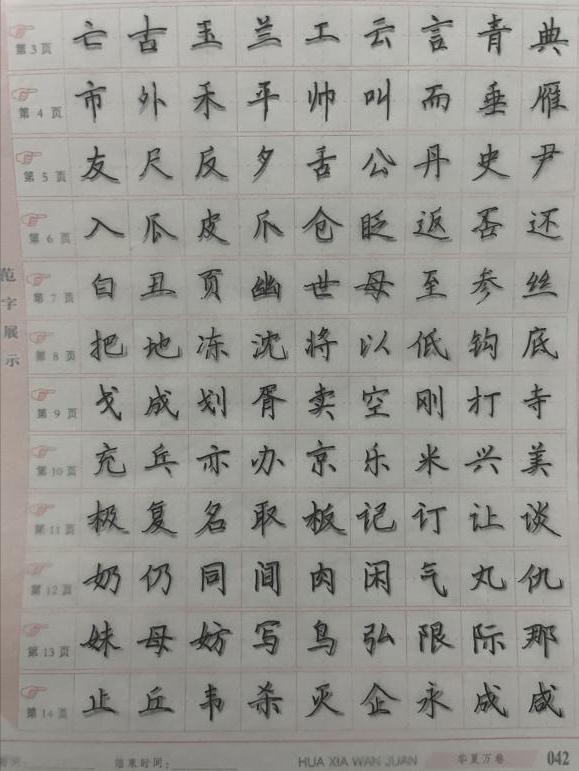 第3页 亡 古 玉 兰 工 云 言 青 典
第4页 市 外 禾 平 帅 叫 而 垂 雁
第5页 友 尺 反 夕 舌 公 丹 史 尹
第6页 入 瓜 皮 爪 仓 眨 返 丢 还
第7页 白 丑 页 幽 世 母 至 参 丝
第8页 把 地 冻 沈 将 以 低 钩 底
第9页 戈 成 划 胥 卖 空 刚 打 寺
第10页 充 兵 亦 办 京 乐 米 兴 美
第11页 极 复 名 取 板 记 订 让 谈
第12页 奶 仍 同 间 肉 闲 气 丸 仇
第13页 妹 母 妨 写 鸟 弘 限 际 那
第14页 止 丘 韦 杀 灭 企 永 成 咸
范字展示
结束时间：
HUA XIA WAN JUAN 华夏万卷 042